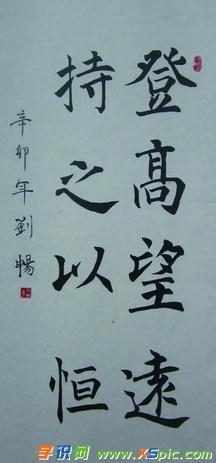 登高望遠
持之以恒
辛卯年劉暢
学识网 www.XSpic.com